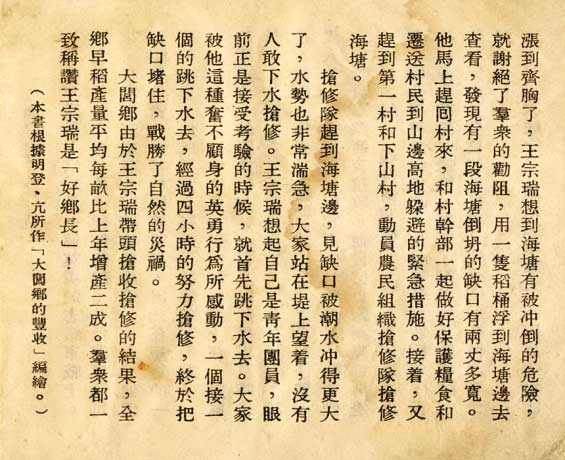 漲到齊胸了，王宗瑞想到海塘有被冲倒的危險，
就謝絕了羣衆的勸阻，用一隻稻桶浮到海塘邊去
查看，發現有一段海塘倒坍的缺口有兩丈多寬。
他馬上趕囘村來，和村幹部一起做好保護糧食和
遷送村民到山邊高地躲避的緊急措施。接着，又
趕到第一村和下山村，動員農民組織搶修隊搶修
海塘。
搶修隊趕到海塘邊，見缺口被潮水冲得更大
了，水勢也非常湍急，大家站在堤上望着，沒有
人敢下水搶修。王宗瑞想起自己是青年團員，眼
前正是接受考驗的時候，就首先跳下水去。大家
被他這種奮不顧身的英勇行爲所感動，一個接一
個的跳下水去，經過四小時的努力搶修，終於把
缺口堵住，戰勝了自然的災禍。
大閭鄉由於王宗瑞帶頭搶收搶修的結果，全
鄉早稻產量平均每畝比上年增產二成。羣衆都一
致稱讚王宗瑞是「好鄉長」！
（本書根據明登、亢所作「大閭鄉的豐收」編繪。）